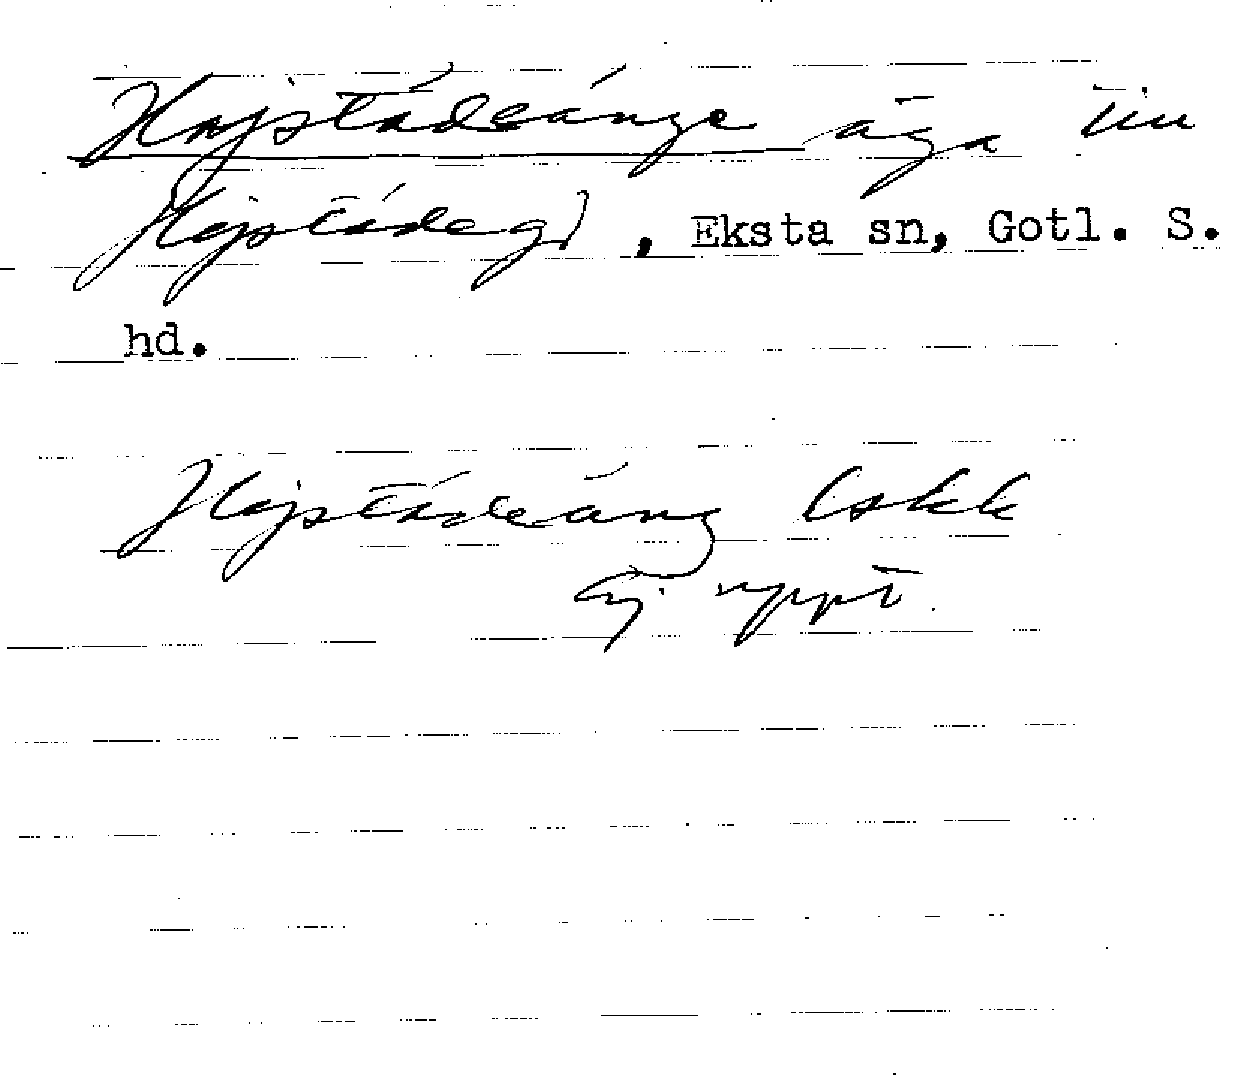 Hajstädeänge äga till
Hajstädegd, Eksta sn, Gotl. S.
hd.
Hajstädeäng Lskk
Ej uppt.